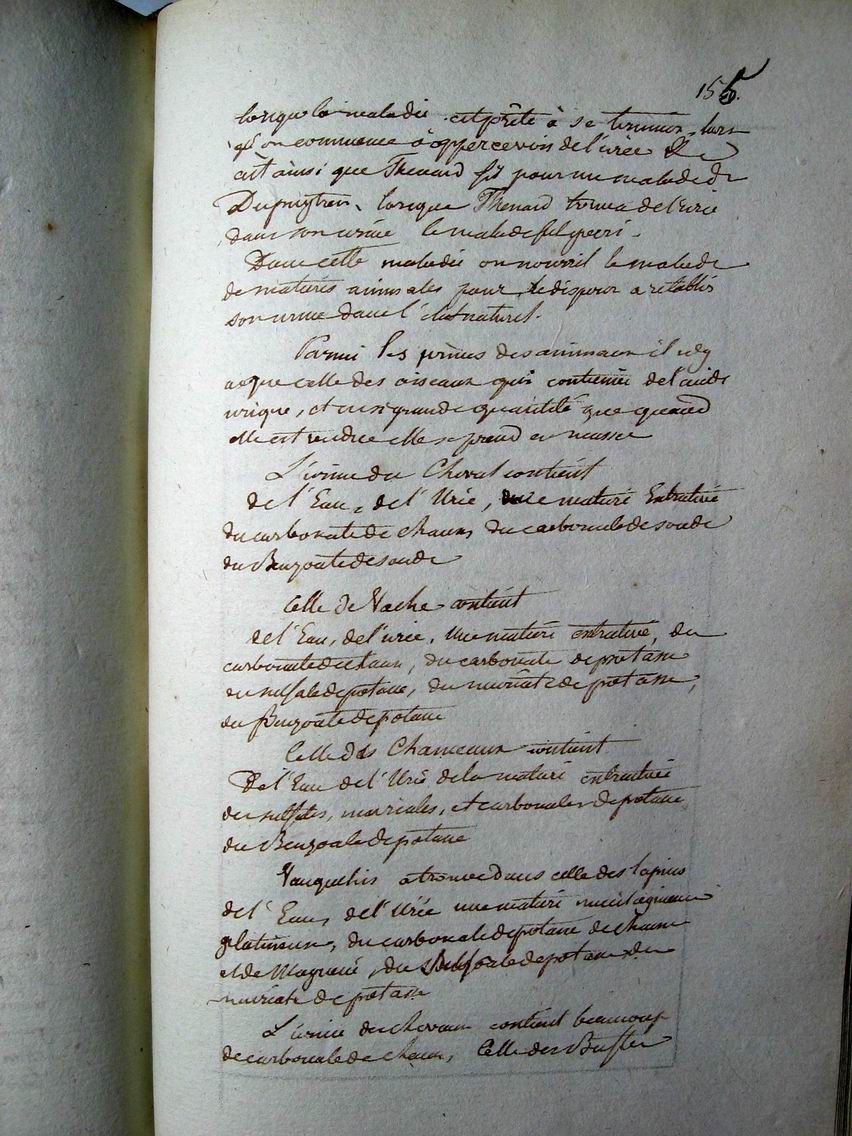 155.
lorsque la maladie est prête à se terminer, lors
qu'on commence à appercevoir de l'urée
c'est ainsi que Thenard fit pour un malade de
Dupuytren, lorsque Thenard trouva de l'urée
dans son urine le malade fut gueri.
Dans cette maladie on nourrit le malade
de matieres animales pour le disposer a retablir
son urine dans l'état naturel.
Parmi les urines des animaux il n'y
a que celle des oiseaux qui contienne de l'acide
urique, et en si grande quantité que quand
elle est rendue elle se prend en masse
L'urine du Cheval contient
de l'Eau, de l'Urée, une matiere Extractive
du carbonate de chaux du carbonate de soude
du Benzoate de soude
Celle de Vache contient
de l'Eau, de l'urée, Une matiere extractive, du
carbonate de chaux, du carbonate de potasse
du sulfate de potasse, du muriate de potasse,
du Benzoate de potasse
Celle des Chameaux contient
De l'Eau de l'Urée de la matiere extractive
des sulfates, muriates, et carbonates de potasse
du Benzoate de potasse
Vauquelin a trouvé dans celle des lapins
de l'Eau, de l'Urée une matiere mucilagineuse
gelatineuse, du carbonate de potasse de chaux
et de Magnesie, du Sulfate de potasse du
muriate de potasse
L'urine des chevaux contient beaucoup
de carbonate de chaux, Celle des